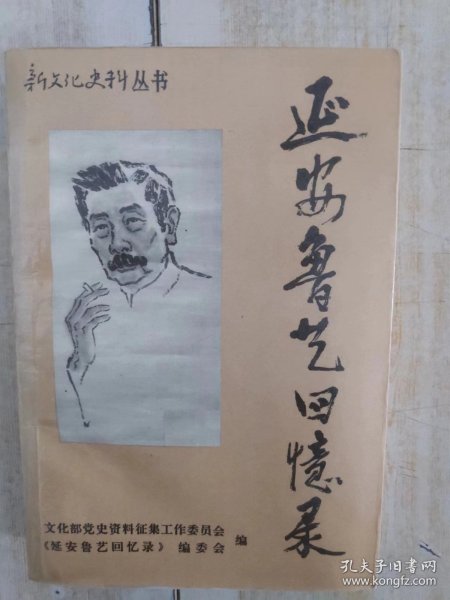 新文化史料丛书
延安鲁艺回憶录
文化部党史资料征集工作委员会
《延安鲁艺回忆录》 编委会
编
孔夫子旧书网